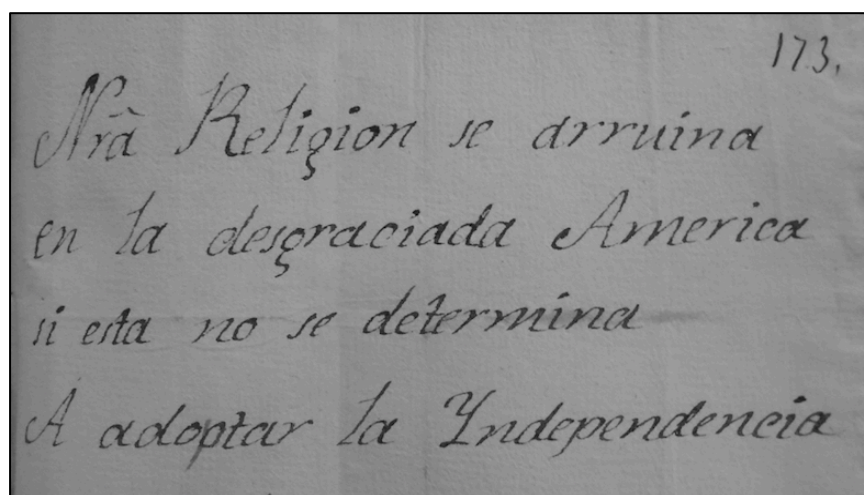 173.
Nrâ Religion se arruina
en la desgraciada America
si esta no se determina
A adoptar la Yndependencia